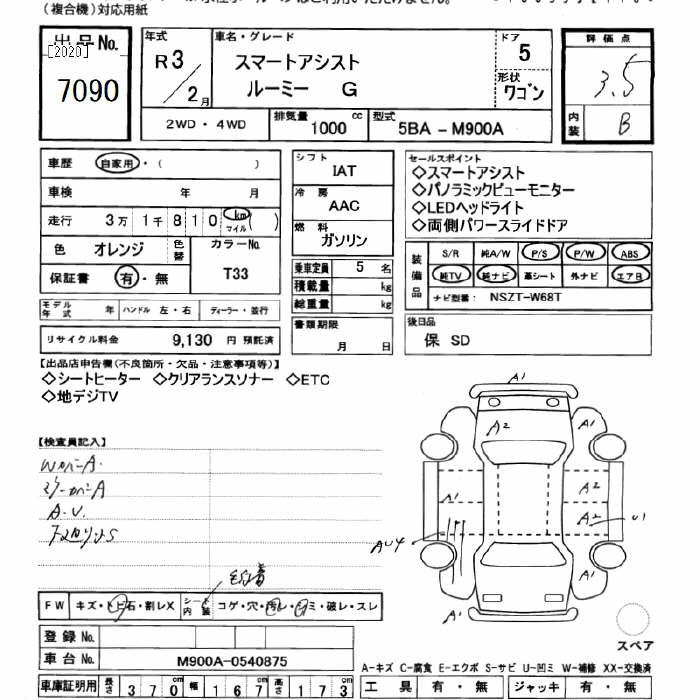 (複合機)対応用紙
出品No.
[2020]
7090
年式
R3/2月
車名・グレード
スマートアシスト
ルーミー G
ドア
5
形状
ワゴン
評価点
3.5
内装
B
2WD・4WD
排気量 1000 cc
型式 5BA-M900A
車歴 自家用・( )
車検 年 月
走行 3万1千810 km マイル ( )
色 オレンジ 色替 カラーNo. T33
保証書 有・無
モデル年式 年 ハンドル 左・右 ディーラー・並行
リサイクル料金 9,130 円 預託済
シフト
IAT
冷房
AAC
燃料
ガソリン
乗車定員 5 名
積載量 kg
総重量 kg
書類期限
月 日
セールスポイント
◇スマートアシスト
◇パノラミックビューモニター
◇LEDヘッドライト
◇両側パワースライドドア
装備品
S/R 純A/W P/S P/W ABS
純TV 純ナビ 革シート 外ナビ エアB
ナビ型番: NSZT-W68T
後日品
保 SD
【出品店申告欄(不良箇所・欠品・注意事項等)】
◇シートヒーター ◇クリアランスソナー ◇ETC
◇地デジTV
【検査員記入】
A.U.
FW キズ・トビ石・割レX シート内装 コゲ・穴・汚レ・シミ・破レ・スレ
登録No.
車台No. M900A-0540875
車庫証明用 長さ 370 cm 幅 167 cm 高さ 173 cm
A1
A2
A1
A1
A2
A2
U1
AU4
A1
A1
スペア
A-キズ C-腐食 E-エクボ S-サビ U-凹ミ W-補修 XX-交換済
工具 有・無 ジャッキ 有・無